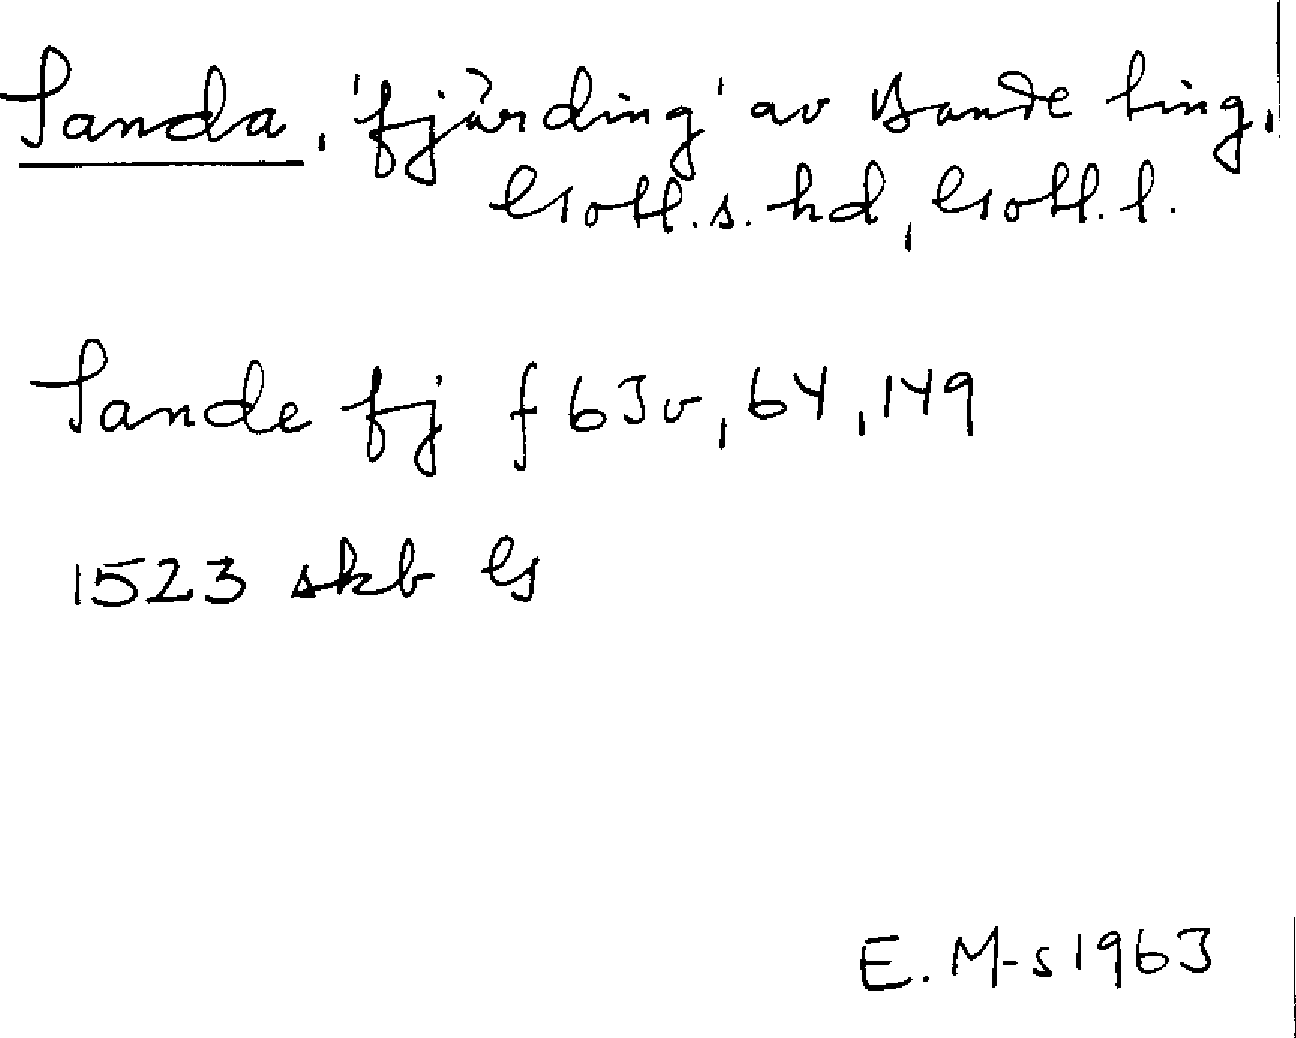 Sanda, 'fjärding' av Bande ting,
Gotl.s.hd, Gotl.l.
Sande fj f 63v, 64, 149
1523 skb G
E. M-s 1963